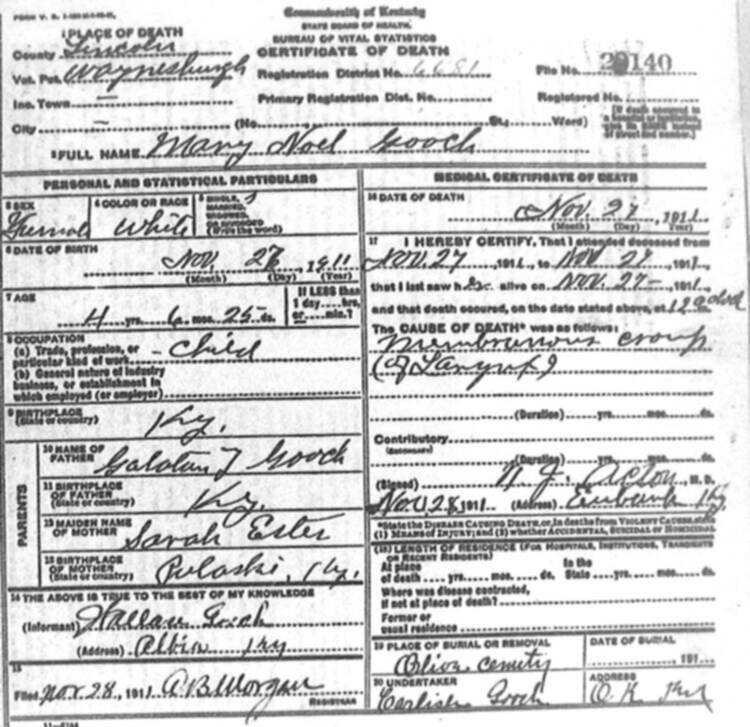 Commonwealth of Kentucky
STATE BOARD OF HEALTH
BUREAU OF VITAL STATISTICS
CERTIFICATE OF DEATH
FORM V. S.
1 PLACE OF DEATH
County Lincoln
Vot. Pct. Waynesburgh
Registration District No. 6681
File No. 29140
Inc. Town —
Primary Registration Dist. No.
Registered No.
City — (No. St., Ward)
[If death occurred in a hospital or institution, give its NAME instead of street and number.]
2 FULL NAME Mary Noel Gooch
PERSONAL AND STATISTICAL PARTICULARS
3 SEX Female
4 COLOR OR RACE White
5 SINGLE, MARRIED, WIDOWED, OR DIVORCED (Write the word) S
6 DATE OF BIRTH
Nov. 1911
(Month) (Day) (Year)
7 AGE
4 yrs. 6 mos. 25 ds.
If LESS than 1 day... hrs. or... min.?
8 OCCUPATION
(a) Trade, profession, or particular kind of work - Child
(b) General nature of industry business, or establishment in which employed (or employer)
9 BIRTHPLACE (State or country) Ky.
PARENTS
10 NAME OF FATHER Galatan J Gooch
11 BIRTHPLACE OF FATHER (State or country) Ky.
12 MAIDEN NAME OF MOTHER Sarah Estes
13 BIRTHPLACE OF MOTHER (State or country) Pulaski, Ky.
14 THE ABOVE IS TRUE TO THE BEST OF MY KNOWLEDGE
(Informant) Wallace Gooch
(Address) Ky
15
Filed Nov. 28, 1911 A B Morgan
REGISTRAR
MEDICAL CERTIFICATE OF DEATH
16 DATE OF DEATH
Nov. 27, 1911
(Month) (Day) (Year)
17 I HEREBY CERTIFY, That I attended deceased from
Nov 27 1911, to Nov 27 1911,
that I last saw her alive on Nov 27- 1911
and that death occured, on the date stated above, at 12
The CAUSE OF DEATH* was as follows:
Membranous croup
(of Larynx)
(Duration) yrs. mos. ds.
Contributory
(SECONDARY)
(Duration) yrs. mos. ds.
(Signed) N. J. Acton, M. D.
Nov 28, 1911 (Address) Eubank Ky.
*State the DISEASE CAUSING DEATH, or, in deaths from VIOLENT CAUSES, state
(1) MEANS OF INJURY; and (2) whether ACCIDENTAL, SUICIDAL OR HOMICIDAL
(18) LENGTH OF RESIDENCE (FOR HOSPITALS, INSTITUTIONS, TRANSIENTS OR RECENT RESIDENTS)
At place of death ... yrs. ... mos. ... ds.
In the State ... yrs. ... mos. ... ds.
Where was disease contracted,
if not at place of death?
Former or
usual residence
19 PLACE OF BURIAL OR REMOVAL
DATE OF BURIAL
191
20 UNDERTAKER
Gooch
ADDRESS
O. K. Ky